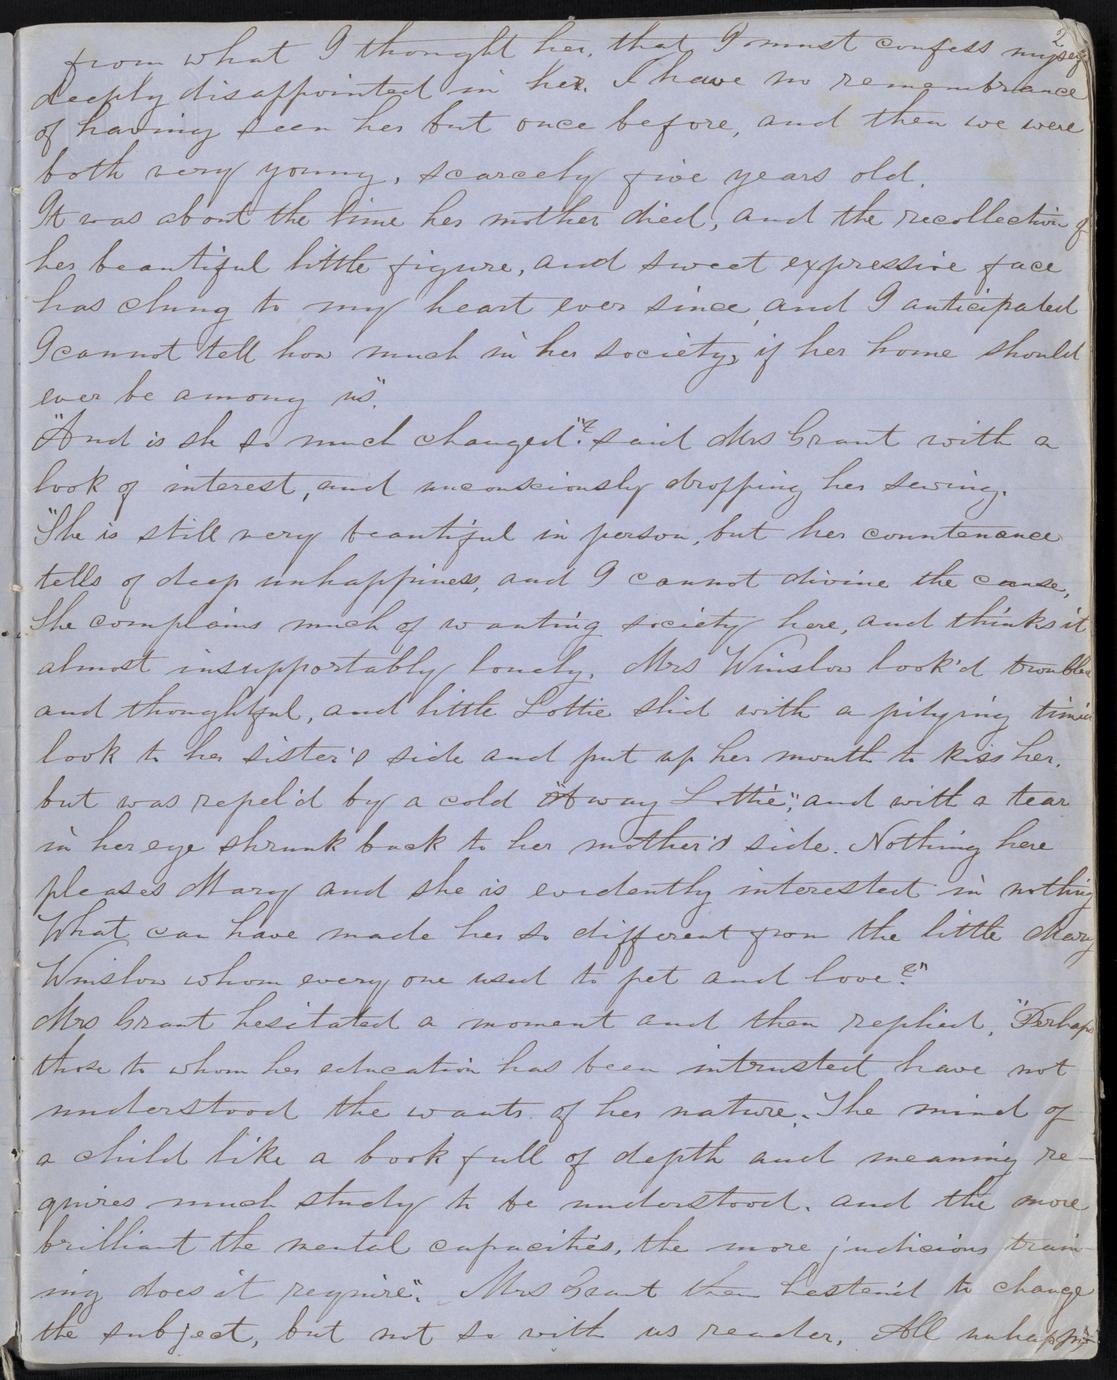 2
from what I thought her, that I must confess myself
deeply disappointed in her. I have no remembrance
of having seen her but once before, and then we were
both very young, scarcely five years old.
It was about the time her mother died, and the recollection of
her beautiful little figure, and sweet expressive face
has clung to my heart ever since, and I anticipated
I cannot tell how much in her society, if her home should
ever be among us".
"And is sh so much changed"? said Mrs Grant with a
look of interest, and unconsciously dropping her sewing.
"She is still very beautiful in person, but her countenance
tells of deep unhappiness, and I cannot divine the cause,
She complains much of wanting society here, and thinks it
almost insupportably lonely. Mrs Winslow look'd troubled
and thoughtful, and little Lottie slid with a pitying timid
look to her sister's side and put up her mouth to kiss her.
but was repel'd by a cold "Away Lottie", and with a tear
in her eye shrunk back to her mother's side. Nothing here
pleases Mary and she is evidently interested in nothing
What can have made her so different from the little Mary
Winslow whom every one used to pet and love?"
Mrs Grant hesitated a moment and then replied, "Perhaps
those to whom her education has been intrusted have not
understood the wants of her nature. The mind of
a child like a book full of depth and meaning re-
quires much study to be understood. and the more
brilliant the mental capacities, the more judicious train-
ing does it require". Mrs Grant then hasten'd to change
the subject, but not so with us reader. All unhappi-